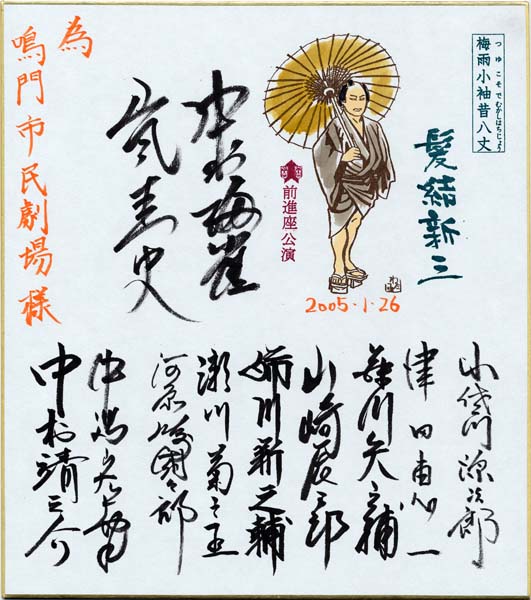 梅雨小袖昔八丈
つゆこそでむかしはちじょう
髪結新三
前進座公演
2005・1・26
中村梅雀
嵐圭史
為
鳴門市民劇場様
小佐川源次郎
津田恵一
益川矢之輔
山崎辰三郎
姉川新之輔
瀬川菊之丞
河原崎國太郎
中村靖之介